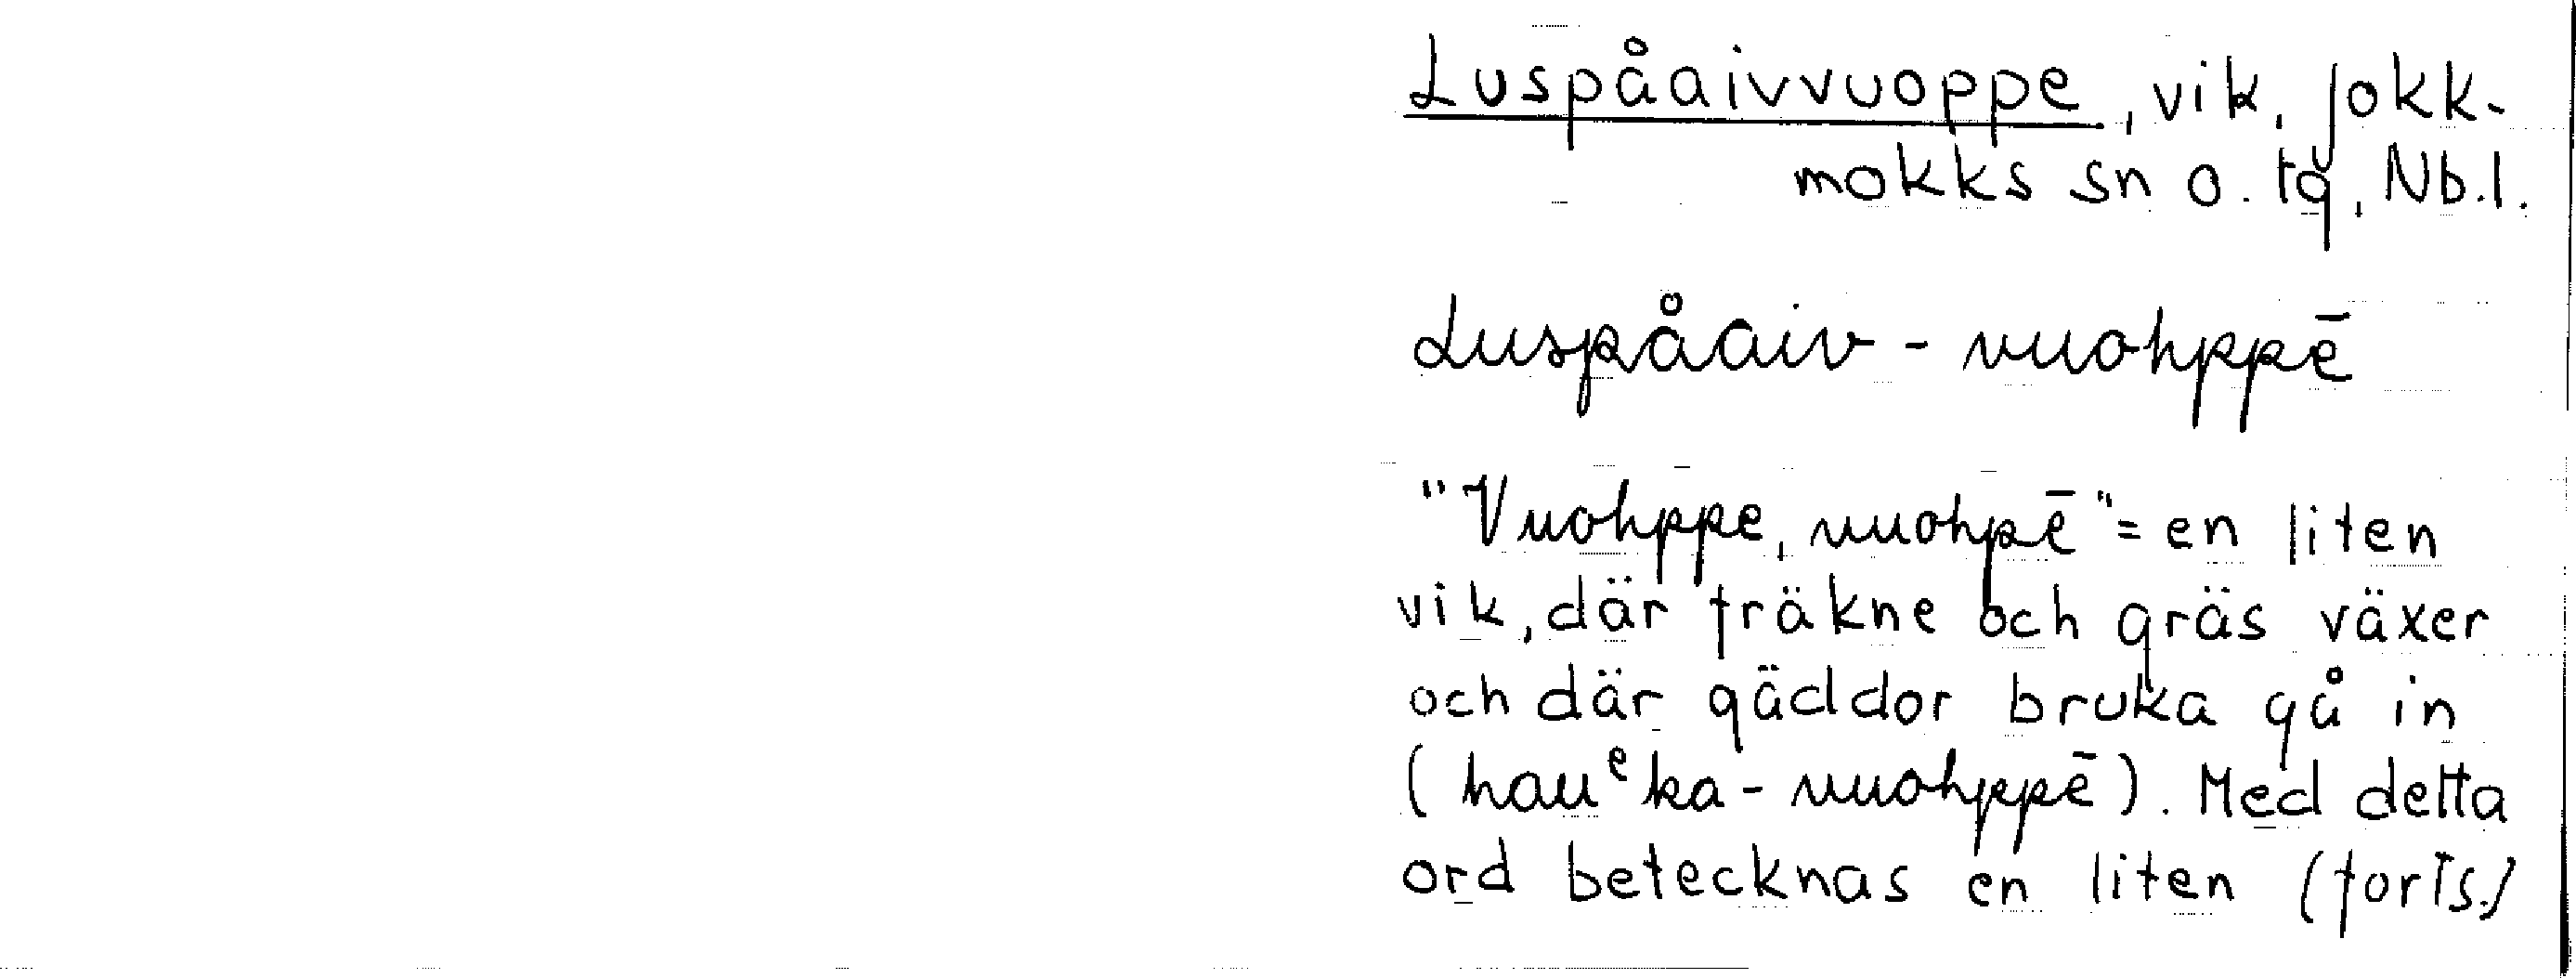 Luspåaivvuoppe, vik, Jokk-
mokks sn o. tg, Nb.l.
Luspåaiv - vuohppē
"Vuohppe, vuohpē" = en liten
vik, där fräkne och gräs växer
och där gäddor bruka gå in
(hauᵉka - vuohppē). Med detta
ord betecknas en liten (forts.)